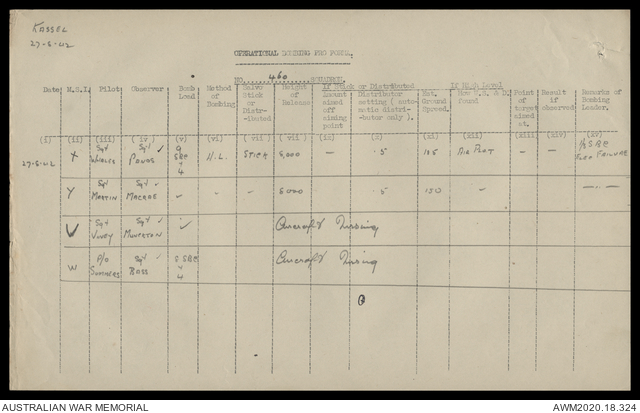 KASSEL
27-8-42
OPERATIONAL BOMBING PRO FORMA.
NO. 460 SQUADRON.
If Stick or Distributed If High Level
Date M.S.I. Pilot Observer Bomb Load Method of Bombing Salvo Stick or Distr-ibuted Height of Release Amount aimed off aiming point Distributor setting (auto-matic distri-butor only). Est. Ground Speed. How W.S. & D. Found Point of target aimed at. Result if observed Remarks of Bombing Leader.
(i) (ii) (iii) (iv) (v) (vi) (vii) (viii) (ix) (x) (xi) (xii) (xiii) (xiv) (xv)
27-8-42 X Sgt Sgt 9 SBC 4 H.L. STICK — .5 AIR PLOT FAILURE
Y Sgt MARTIN Sgt .5 150
V Sgt Sgt Aircraft Missing
W P/O SUMMERS Sgt BOSS 5 SBC 4 Aircraft Missing
AUSTRALIAN WAR MEMORIAL AWM2020.18.324